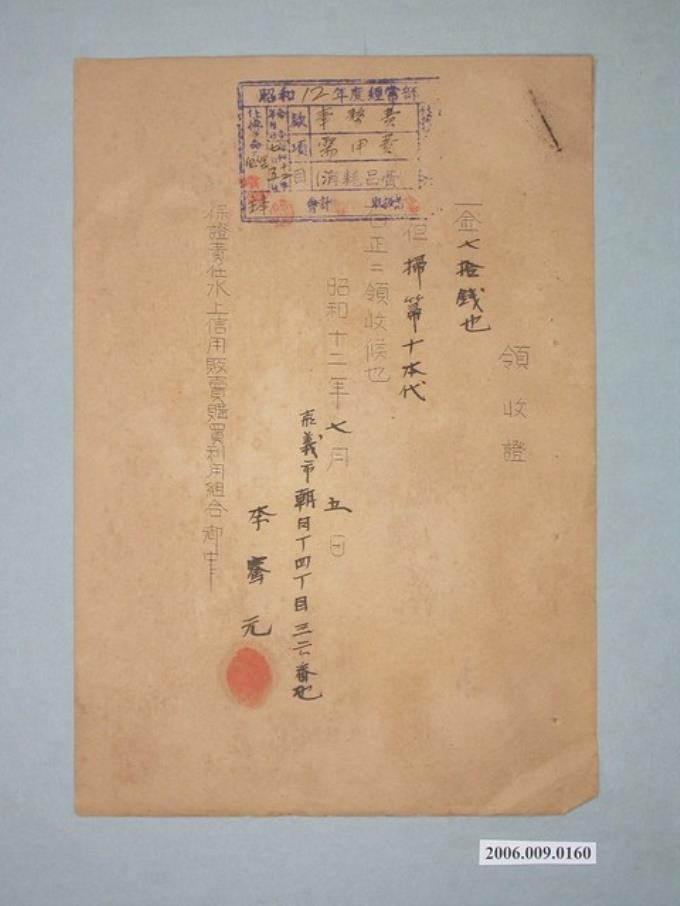 領收證
一金七拾錢也
但 掃箒十本代
右正ニ領收候也
昭和十二年七月五日
嘉義市朝日丁四丁目三二番地
李 元
保證責任水上信用販賣購買利用組合 御中
昭和12年度經常部
款 事務費
項 需用費
目 消耗品費
會計
2006.009.0160